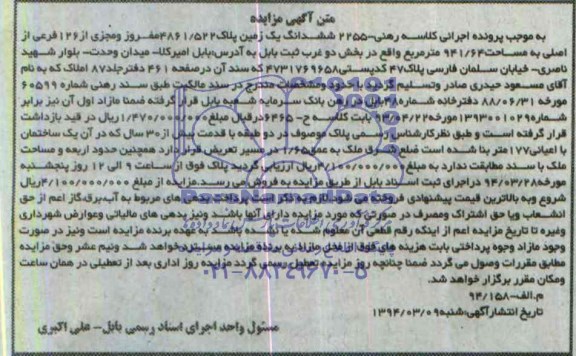 متن آگهی مزایده
به موجب پرونده اجرائی کلاسه رهنی-۲۲۵۵ ششدانگ یک زمین پلاک۴۸۶۱/۵۲۲مفروز ومجزی از۱۲۶فرعی از
اصلی به مساحت۹۴۱/۶۴ مترمربع واقع در بخش دو غرب ثبت بابل به آدرس:بابل امیرکلا- میدان وحدت- بلوار شهید
ناصری- خیابان سلمان فارسی پلاک۴۷ کدپستی۴۷۳۱۷۶۹۶۵۸ که سند آن درصفحه ۴۶۱ دفترجلد۸۷ املاک که به نام
آقای مسعود حیدری صادر وتسلیم گردید با حدود ومشخصات مندرج در سند مالکیت طبق سند رهنی شماره ۶۰۵۹۹
مورخه ۸۸/۰۶/۳۱ دفترخانه شماره۴۸ بابل در رهن بانک سرمایه شعبه بابل قرار گرفته ضمنا مازاد اول آن نیز برابر
شماره۱۳۹۳۰۰۱۰۲۹ مورخه۹۳/۰۴/۲۲ بابت کلاسه ج-۶۴۶۵ درقبال مبلغ ۱/۴۷۰/۰۰۰/۰۰۰ریال در قید بازداشت
قرار گرفته است و طبق نظرکارشناس رسمی پلاک موصوف در دو طبقه با قدمت بیش از۳۰ سال که در آن یک ساختمان
با اعیانی۱۷۷متر بنا شده است ضلع شرق ملک به عمق۱/۶۵ در مسیر تعریض قرار دارد همچنین حدود اربعه و مساحت
ملک با سند مطابقت ندارد به مبلغ ۴/۱۰۰/۰۰۰/۰۰۰ریال ارزیابی گردید پلاک فوق از ساعت ۹ الی ۱۲ روز پنجشنبه
مورخه۹۴/۰۳/۲۸ دراجرای ثبت اسناد بابل از طریق مزایده به فروش می رسد.مزایده از مبلغ ۴/۱۰۰/۰۰۰/۰۰۰ریال
شروع وبه بالاترین قیمت پیشنهادی فروخته می شود.لازم به ذکر است پرداخت بدهی های مربوط به آب،برق،گاز اعم از حق
انشعاب ویا حق اشتراک ومصرف در صورتی که مورد مزایده دارای آنها باشد ونیز بدهی های مالیاتی وعوارض شهرداری
وغیره تا تاریخ مزایده اعم از اینکه رقم قطعی آن معلوم شده یا نشده باشد به عهده برنده مزایده است ونیز در صورت
وجود مازاد وجوه پرداختی بابت هزینه های فوق از محل مازاد به برنده مزایده مسترد خواهد شد ونیم عشر وحق مزایده
مطابق مقررات وصول می گردد ضمنا چنانچه روز مزایده تعطیل رسمی گردد مزایده روز اداری بعد از تعطیلی در همان ساعت
ومکان مقرر برگزار خواهد شد.
م.الف-۹۴/۱۵۸
تاریخ انتشارآگهی:شنبه۱۳۹۴/۰۳/۰۹
مسئول واحد اجرای اسناد رسمی بابل- علی اکبری
۰۲۱-۸۸۳۴۹۶۷۰-۵